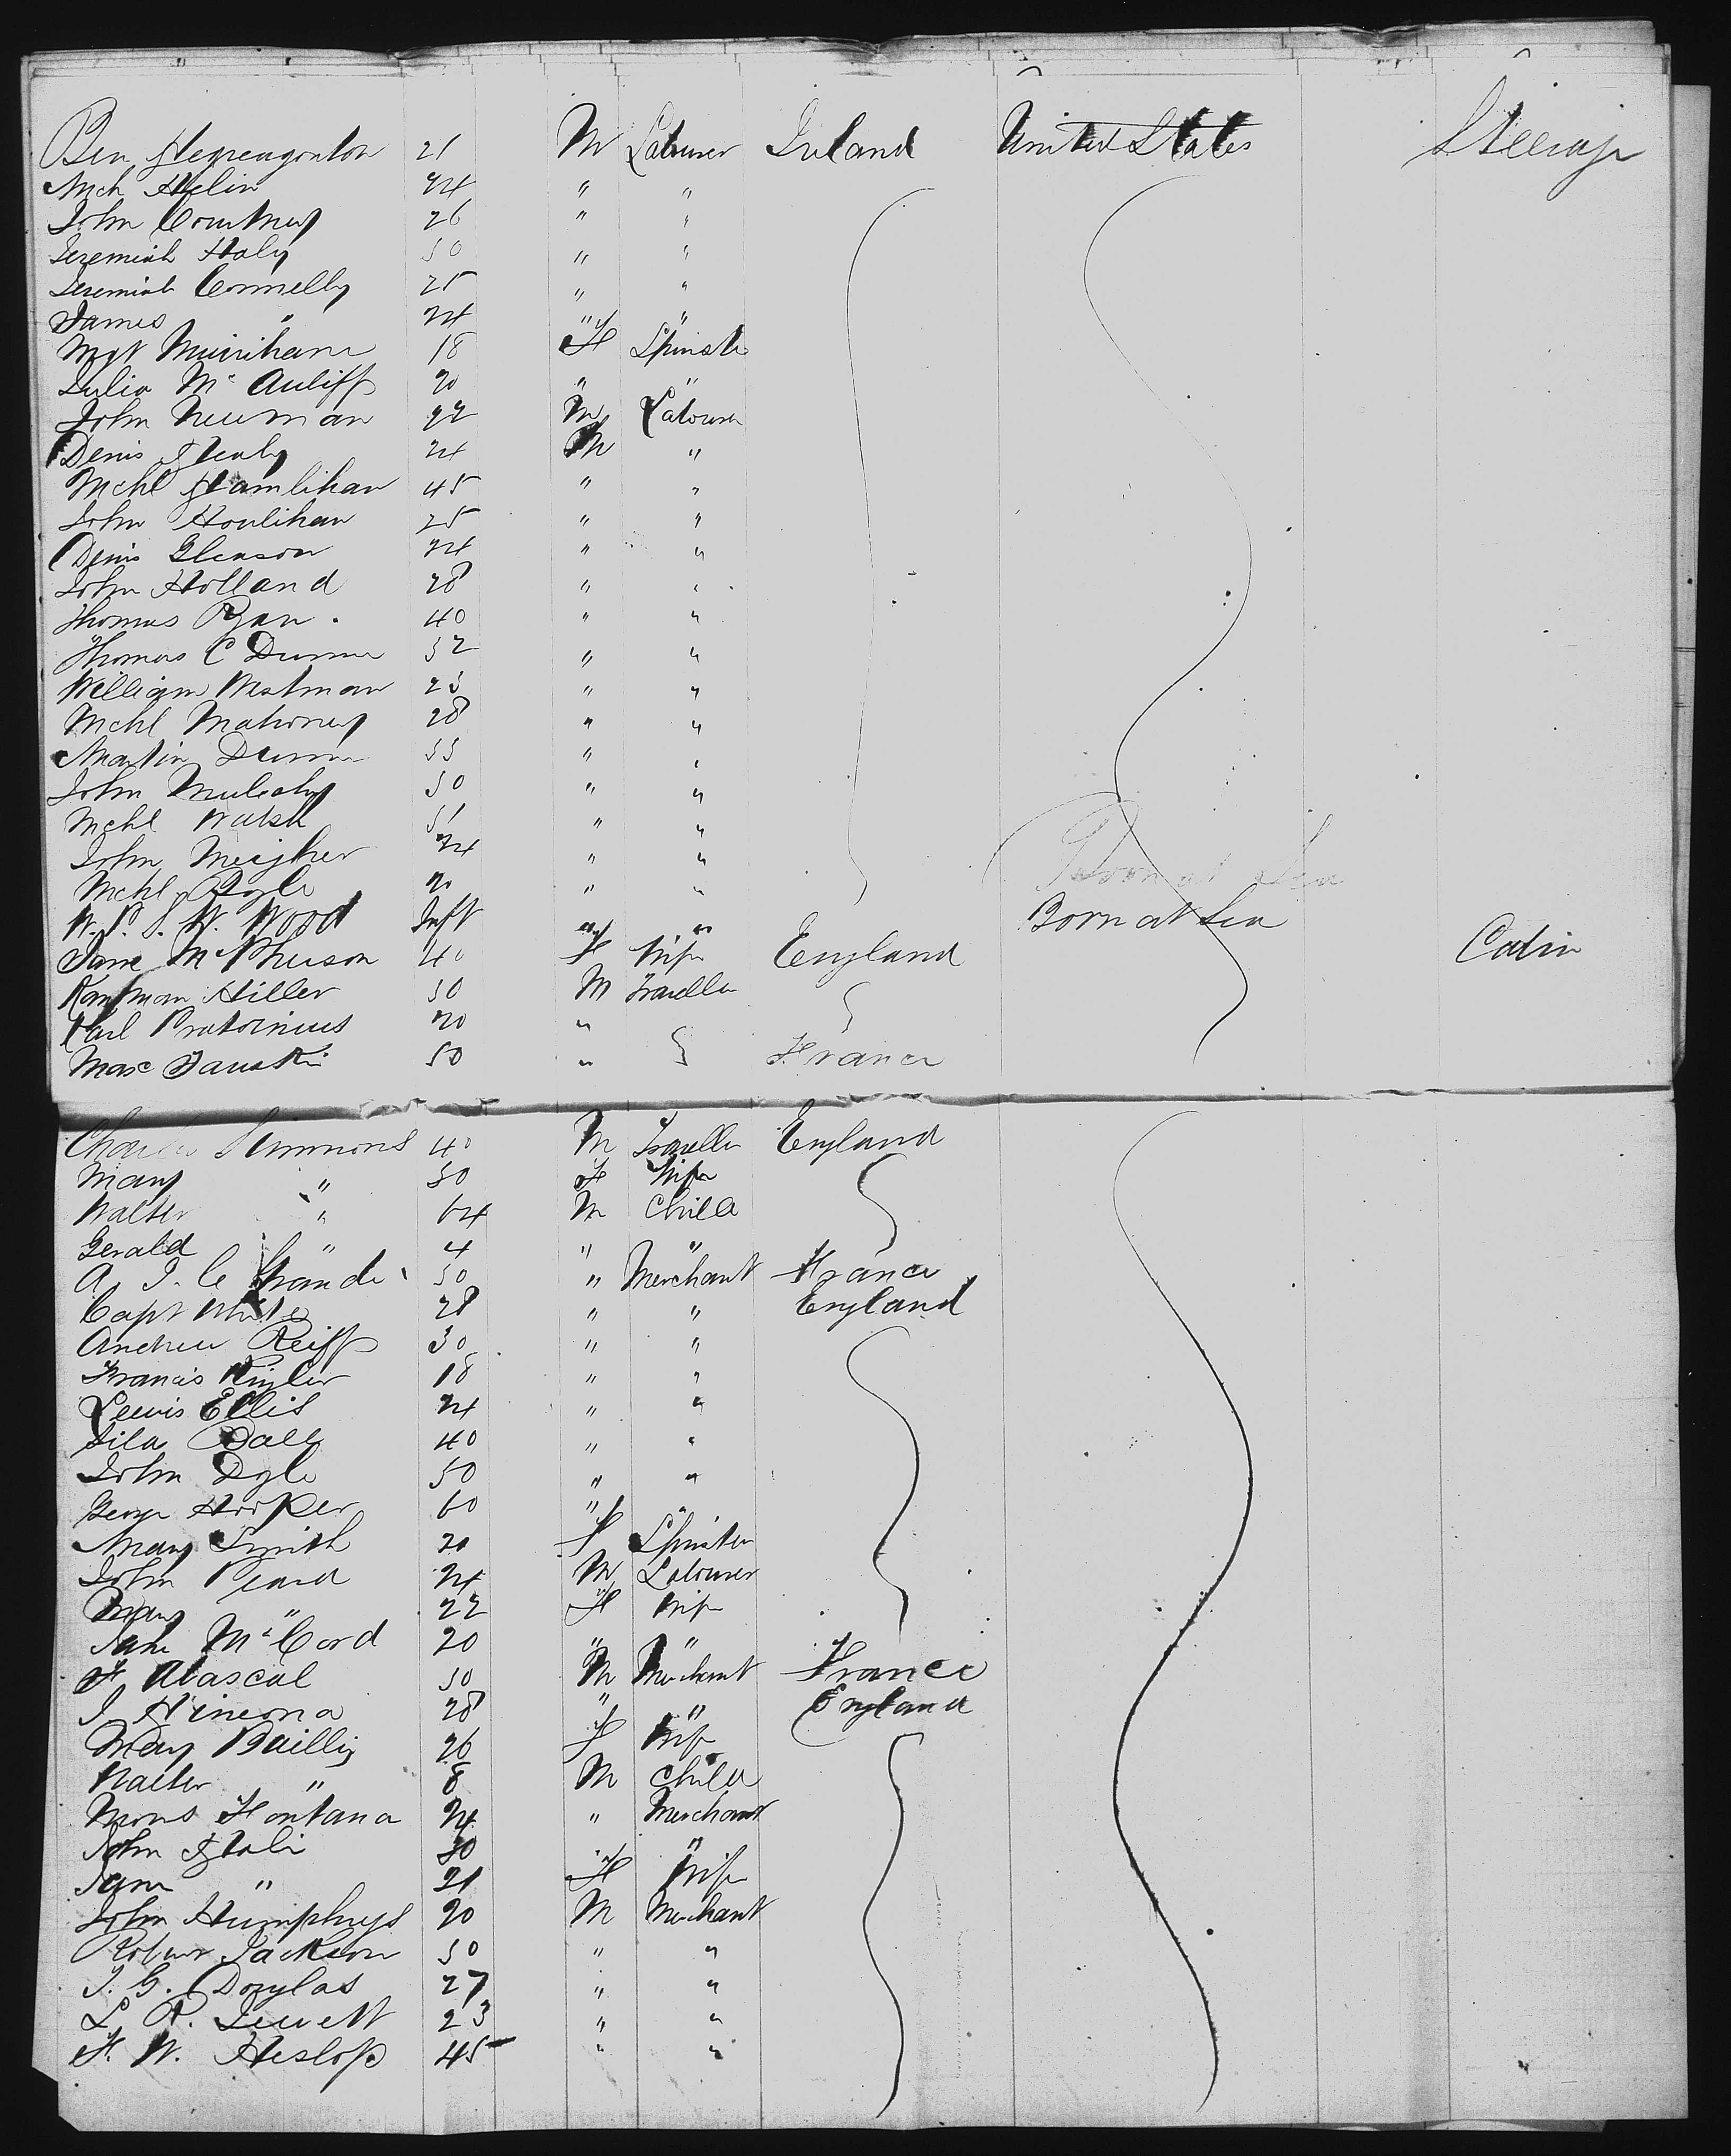 Ben 21 M Labourer Ireland United States Steerage
Mch Helin 24 " "
John Courtney 26 " "
Jeremiah Haly 30 " "
Jeremiah Connelly 25 " "
James " 24 " "
Mgt Muirihane 18 F Spinster
Julia McAuliff 20 " "
John Neuman 22 M Labourer
Denis Healy 24 M "
Mchl Hamlihan 45 " "
John Houlihan 25 " "
Denis Gleason 24 " "
John Holland 28 " "
Thomas Ryan 40 " "
Thomas C Dunne 32 " "
William Westman 23 " "
Mchl Mahoney 28 " "
Martin Dunne 33 " "
John Mulcahy 30 " "
Mchl Walsh " "
John Meagher 24 " "
Mchl 20 " "
W. P. S. W. Wood Inft " " Born at Sea
Jane McPherson 40 F Wife England Cabin
Kaufman Hiller 30 M Traveller
Karl Pratorinus 20 "
Max 50 " France
Charles Simmons 40 M Traveller England
Mary " 30 F Wife
Walter " 6 M Child
Gerald " 4 " "
A. J. le Grande 30 " Merchant France
Capt White 28 " " England
Andrew Reiff 30 " "
Francis 18 " "
Lewis Ellis 24 " "
Sila Ball 40 " "
John Dyle 50 " "
George Hooper 60 " "
Mary Smith 20 F Spinster
John Peard 24 M Labourer
Mary " 22 F Wife
Jane McCord 20 " "
F Abascal 30 M Merchant France
J Hineona 28 " " England
Mary Baillig 26 F Wife
Walter " 8 M Child
Mons Fontana 24 " Merchant
John Hali 30 " "
Jane " 21 F Wife
John Humphreys 20 M Merchant
Robert Jackson 30 " "
J. G. Douglas 27 " "
L. R. Jewett 23 " "
F. W. Heslop 45 " "